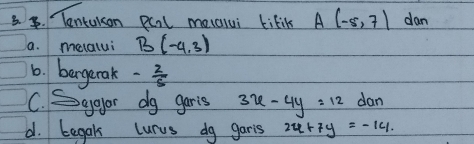 3. Tentukan PGL melalui titik A (-5, 7) dan
a. melalui B (-4,3)
b. bergerak - 2/5
C. Sejajar dg garis 3x - 4y = 12 dan
d. tegak lurus dg garis 2x + 7y = -14.